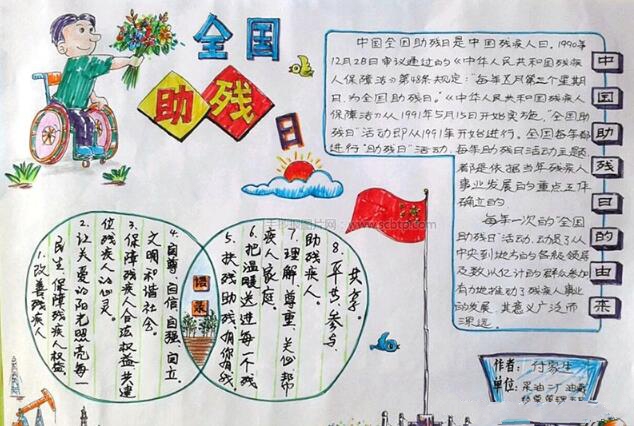 全国
助残
日
中国助残日的由来
中国全国助残日是中国残疾人日。1990年
12月28日审议通过的《中华人民共和国残疾
人保障法》第48条规定:"每年五月第三个星期
日,为全国助残日。"《中华人民共和国残疾人
保障法》从1991年5月15日开始实施,"全国助
残日"活动即从1991年开始进行。全国每年都
进行"助残日"活动,
每年助残日活动主题
都是依据当年残疾人
事业发展的重点工作
确立的
每年一次的"全国
助残日"活动,动员了从
中央到地方的各级领导
及数以亿计的群众参加
有力地推动了残疾人事业
的发展,其意义广泛而
深远。
语录
1.改善残疾人
民生,保障残疾人权益
2.让关爱的阳光照亮每一
位残疾人的心灵。
3.保障残疾人合法权益,共建
文明和谐社会
4.自尊、自信、自强、自立.
5.扶残助残,有你有我
6.把温暖送进每一个残
疾人家庭。
7.理解、尊重、关心、帮
助残疾人。
8.平等、参与、
共享。
作者:付家生
单位:采油二厂
www.scbtp.com